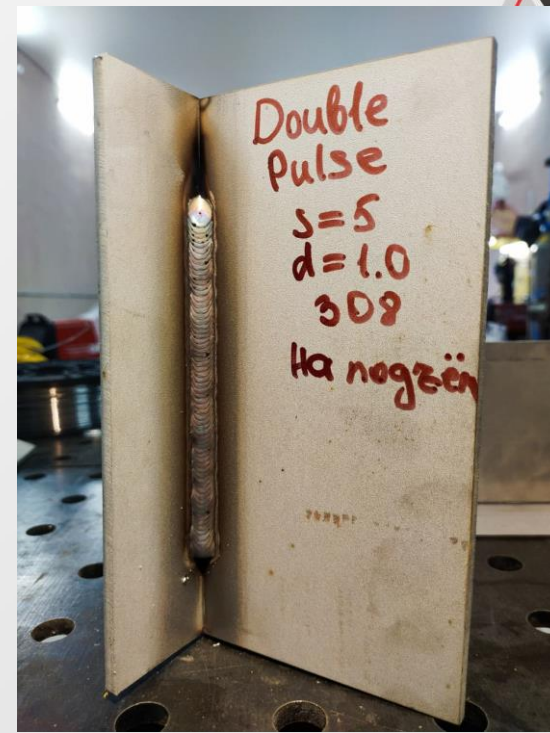 Double
Pulse
s=5
d=1.0
308
На подъём